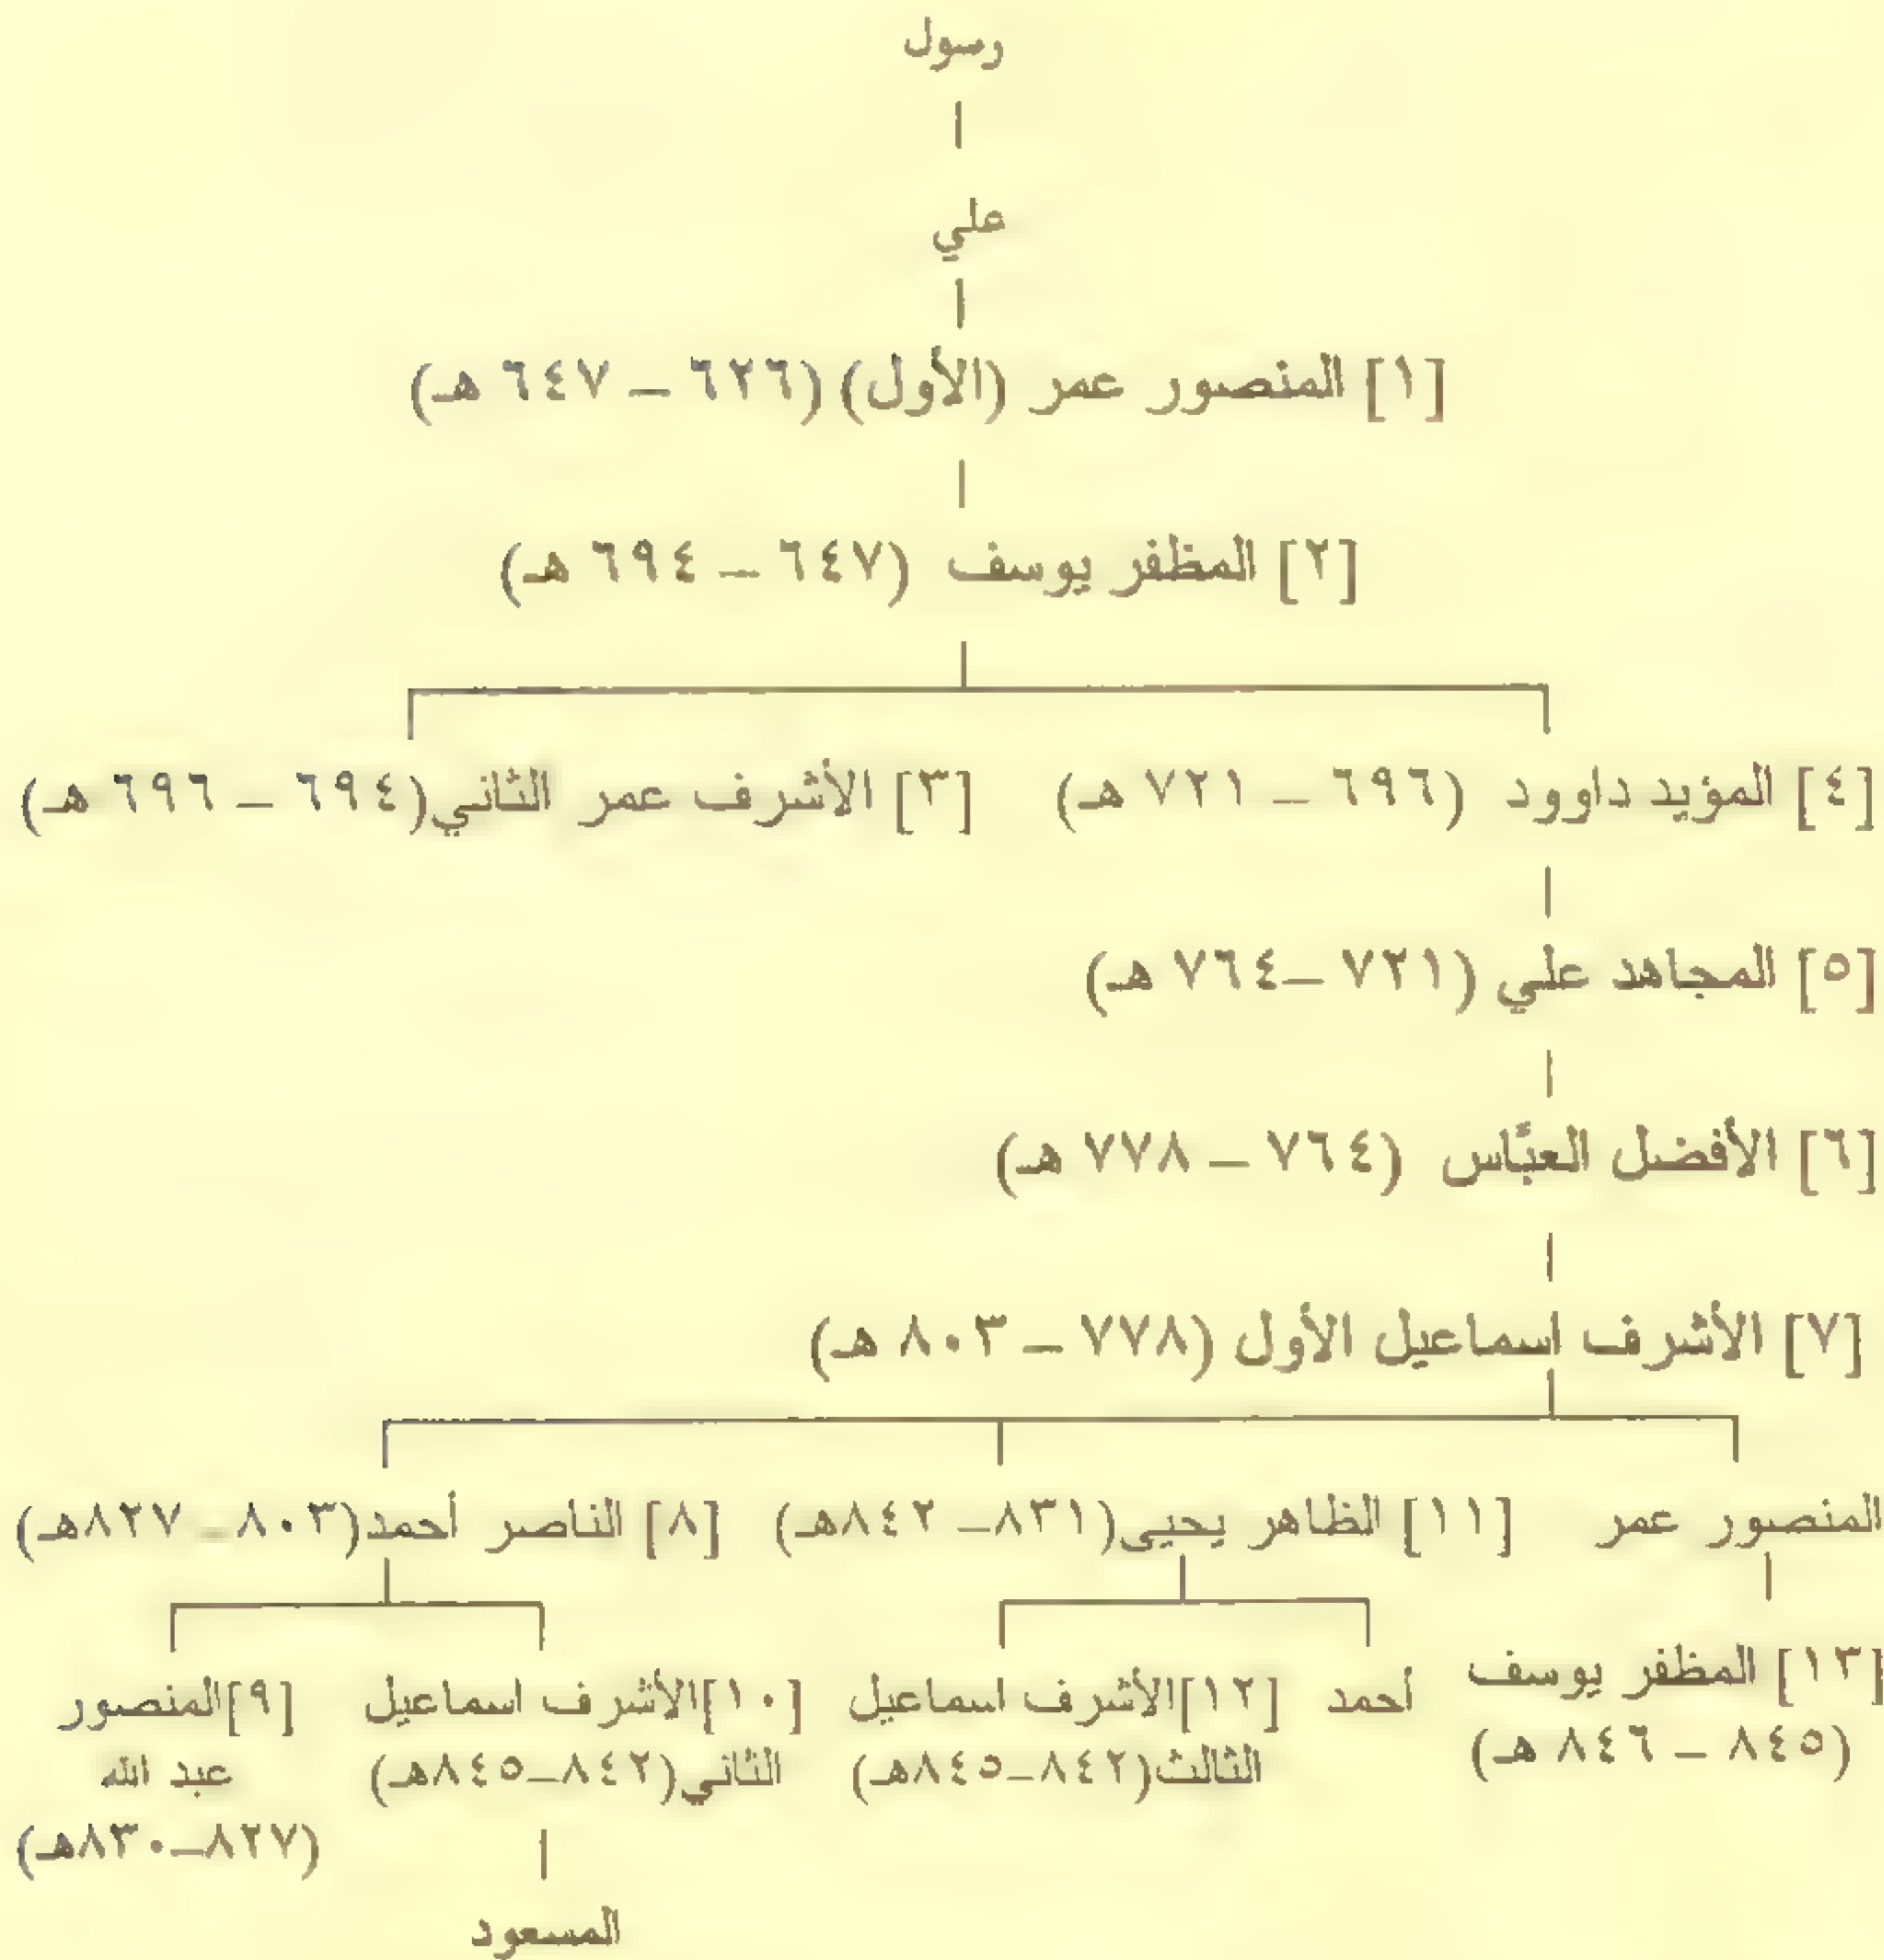 رسول
علي
[١] المنصور عمر (الأول) (٦٢٦ – ٦٤٧ هـ)
[٢] المظفر يوسف (٦٤٧ – ٦٩٤ هـ)
[٤] المؤيد داوود (٦٩٦ – ٧٢١ هـ) [٣] الأشرف عمر الثاني(٦٩٤ – ٦٩٦ هـ)
[٥] المجاهد علي (٧٢١ –٧٦٤ هـ)
[٦] الأفضل العبَّاس (٧٦٤ – ٧٧٨ هـ)
[٧] الأشرف اسماعيل الأول (٧٧٨ – ٨٠٣ هـ)
المنصور عمر [١١] الظاهر يحيى(٨٣١– ٨٤٢هـ) [٨] الناصر أحمد(٨٠٣– ٨٢٧هـ)
[١٣] المظفر يوسف
(٨٤٥ – ٨٤٦ هـ)
أحمد
[١٢]الأشرف اسماعيل
الثالث(٨٤٢–٨٤٥هـ)
[١٠]الأشرف اسماعيل
الثاني(٨٤٢–٨٤٥هـ)
[٩]المنصور
عبد الله
(٨٢٧–٨٣٠هـ)
المسعود